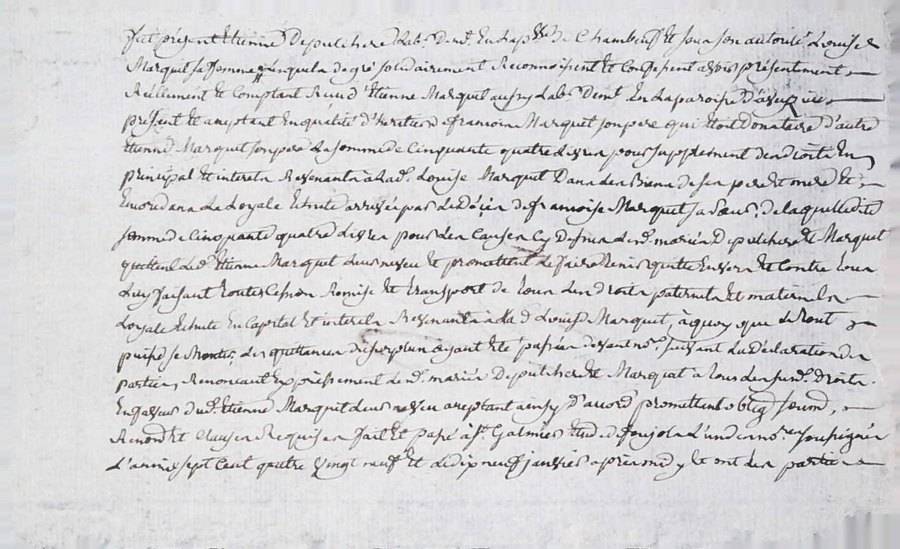 fut présent Etienne Depulchere lab.r dem.t En la p.sse de Chambeuf Et sous son autorité Louise
Marquit sa femme lesquels de gré solidairement Reconnoissent Et Confessent avoir présentement
Réellement Et Comptant Reçu d'Etienne Marquit aussy lab.r demt. En la paroisse d'aveizieu
présent Et aceptant En qualité d'heritier de francois Marquit son pere qui Etoit Donataire d'autre
Etienne Marquit son pere La somme de Cinquante quatre Livres pour supplement des droits En
principal Et interets Revenants à lad. Louise Marquit Dans les Biens de ses pere Et mere Et
Encor dans La Loyale Echute arrivée par Le Décés de francoise Marquit sa sœur, de laquelle dite
somme de Cinquante quatre Livres pour les Causes Cy Dessus Les d. mariés Depulchere Et Marquit
quittent Led. Etienne Marquit Leur neveu Et promettent Le faire tenir quitte Envers Et Contre tous
Luy faisant toutes Cession Remise Et transport de tous Les droits paternels Et maternels
Loyale Echute En Capital Et interets Revenants à la d. Louise Marquit, à quoy que Le tout
puisse se Monter, Les quittances du surplus ayant Eté passées devant no.e suivant La Déclaration des
parties, Renoncant Expréssement Les d. mariés Depulchere Et Marquit à tous les susd. droits
En faveur dud. Etienne Marquit Leur neveu aceptant ainsy D'accord promettent oblig. soum.,
Renon. Et clauses Requises fait Et passé à S.t Galmier Etude de Poujol L'un des no.res soussignés
L'an mil sept Cent quatre vingt neuf Et Le dix neuf janvier après midy Et ont Les parties